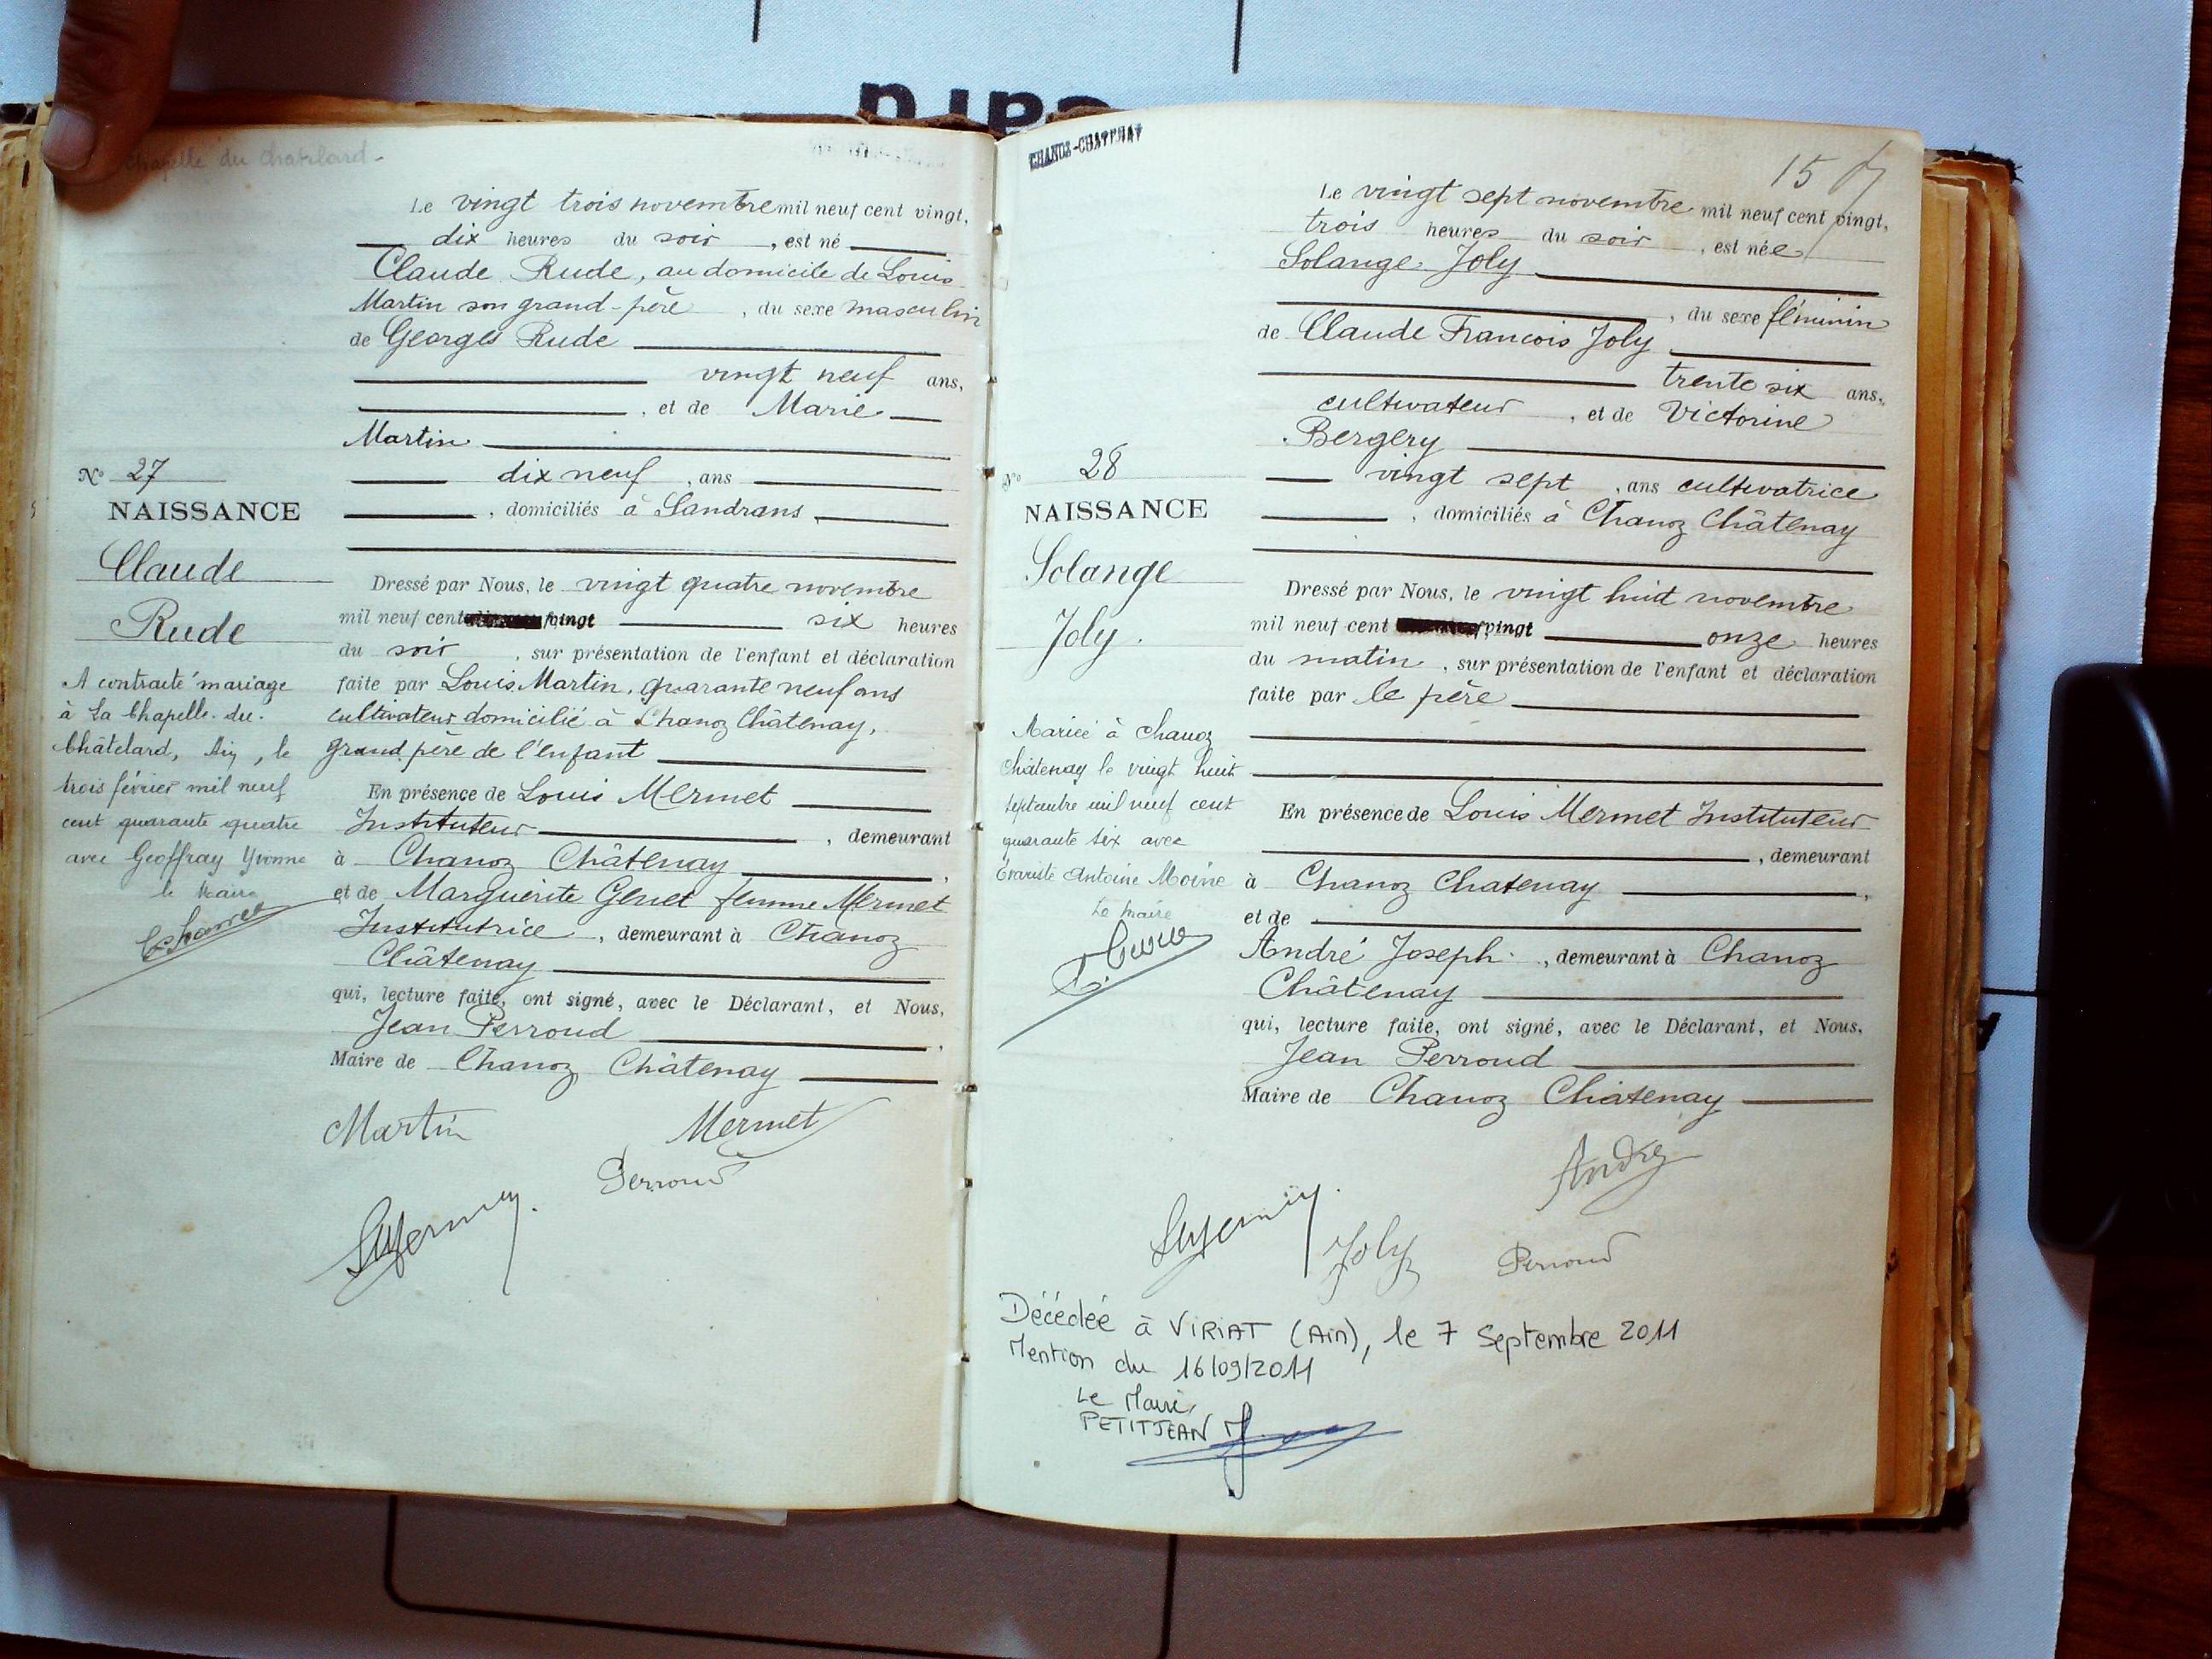 Chapelle du Chatelard -
Le vingt trois novembre mil neuf cent vingt,
dix heures du soir, est né
Claude Rude, au domicile de Louis
Martin son grand-père, du sexe masculin
de Georges Rude
vingt neuf ans,
, et de Marie
Martin
dix neuf, ans
, domiciliés à Sandrans,
N° 27
NAISSANCE
Claude
Rude
Dressé par Nous, le vingt quatre novembre
mil neuf cent vingt six heures
du soir, sur présentation de l'enfant et déclaration
faite par Louis Martin, quarante neuf ans
cultivateur domicilié à Chanoz Châtenay,
grand père de l'enfant
En présence de Louis Mermet
Instituteur, demeurant
à Chanoz Châtenay,
et de Marguerite Genet femme Mermet
Institutrice, demeurant à Chanoz
Châtenay
qui, lecture faite, ont signé, avec le Déclarant, et Nous,
Jean Perroud,
Maire de Chanoz Châtenay
A contracté mariage
à La Chapelle-du-
Châtelard, Ain, le
trois février mil neuf
cent quarante quatre
avec Geoffray Yvonne
le Maire
Martin
Mermet
Perroud
CHANOZ-CHATENAY
15
Le vingt sept novembre mil neuf cent vingt,
trois heures du soir, est née
Solange Joly
, du sexe féminin
de Claude Francois Joly
trente six ans,
cultivateur, et de Victorine
Bergery
vingt sept, ans cultivatrice
, domiciliés à Chanoz Châtenay
N° 28
NAISSANCE
Solange
Joly.
Dressé par Nous, le vingt huit novembre
mil neuf cent vingt onze heures
du matin, sur présentation de l'enfant et déclaration
faite par le père
En présence de Louis Mermet Instituteur
, demeurant
à Chanoz Chatenay,
et de
André Joseph, demeurant à Chanoz
Châtenay
qui, lecture faite, ont signé, avec le Déclarant, et Nous,
Jean Perroud
Maire de Chanoz Châtenay
Mariée à Chanoz
Châtenay le vingt huit
septembre mil neuf cent
quarante six avec
Evariste Antoine Moine
Le maire
André
Joly
Perroud
Décédée à VIRIAT (Ain), le 7 Septembre 2011
Mention du 16/09/2011
Le Maire,
PETITJEAN